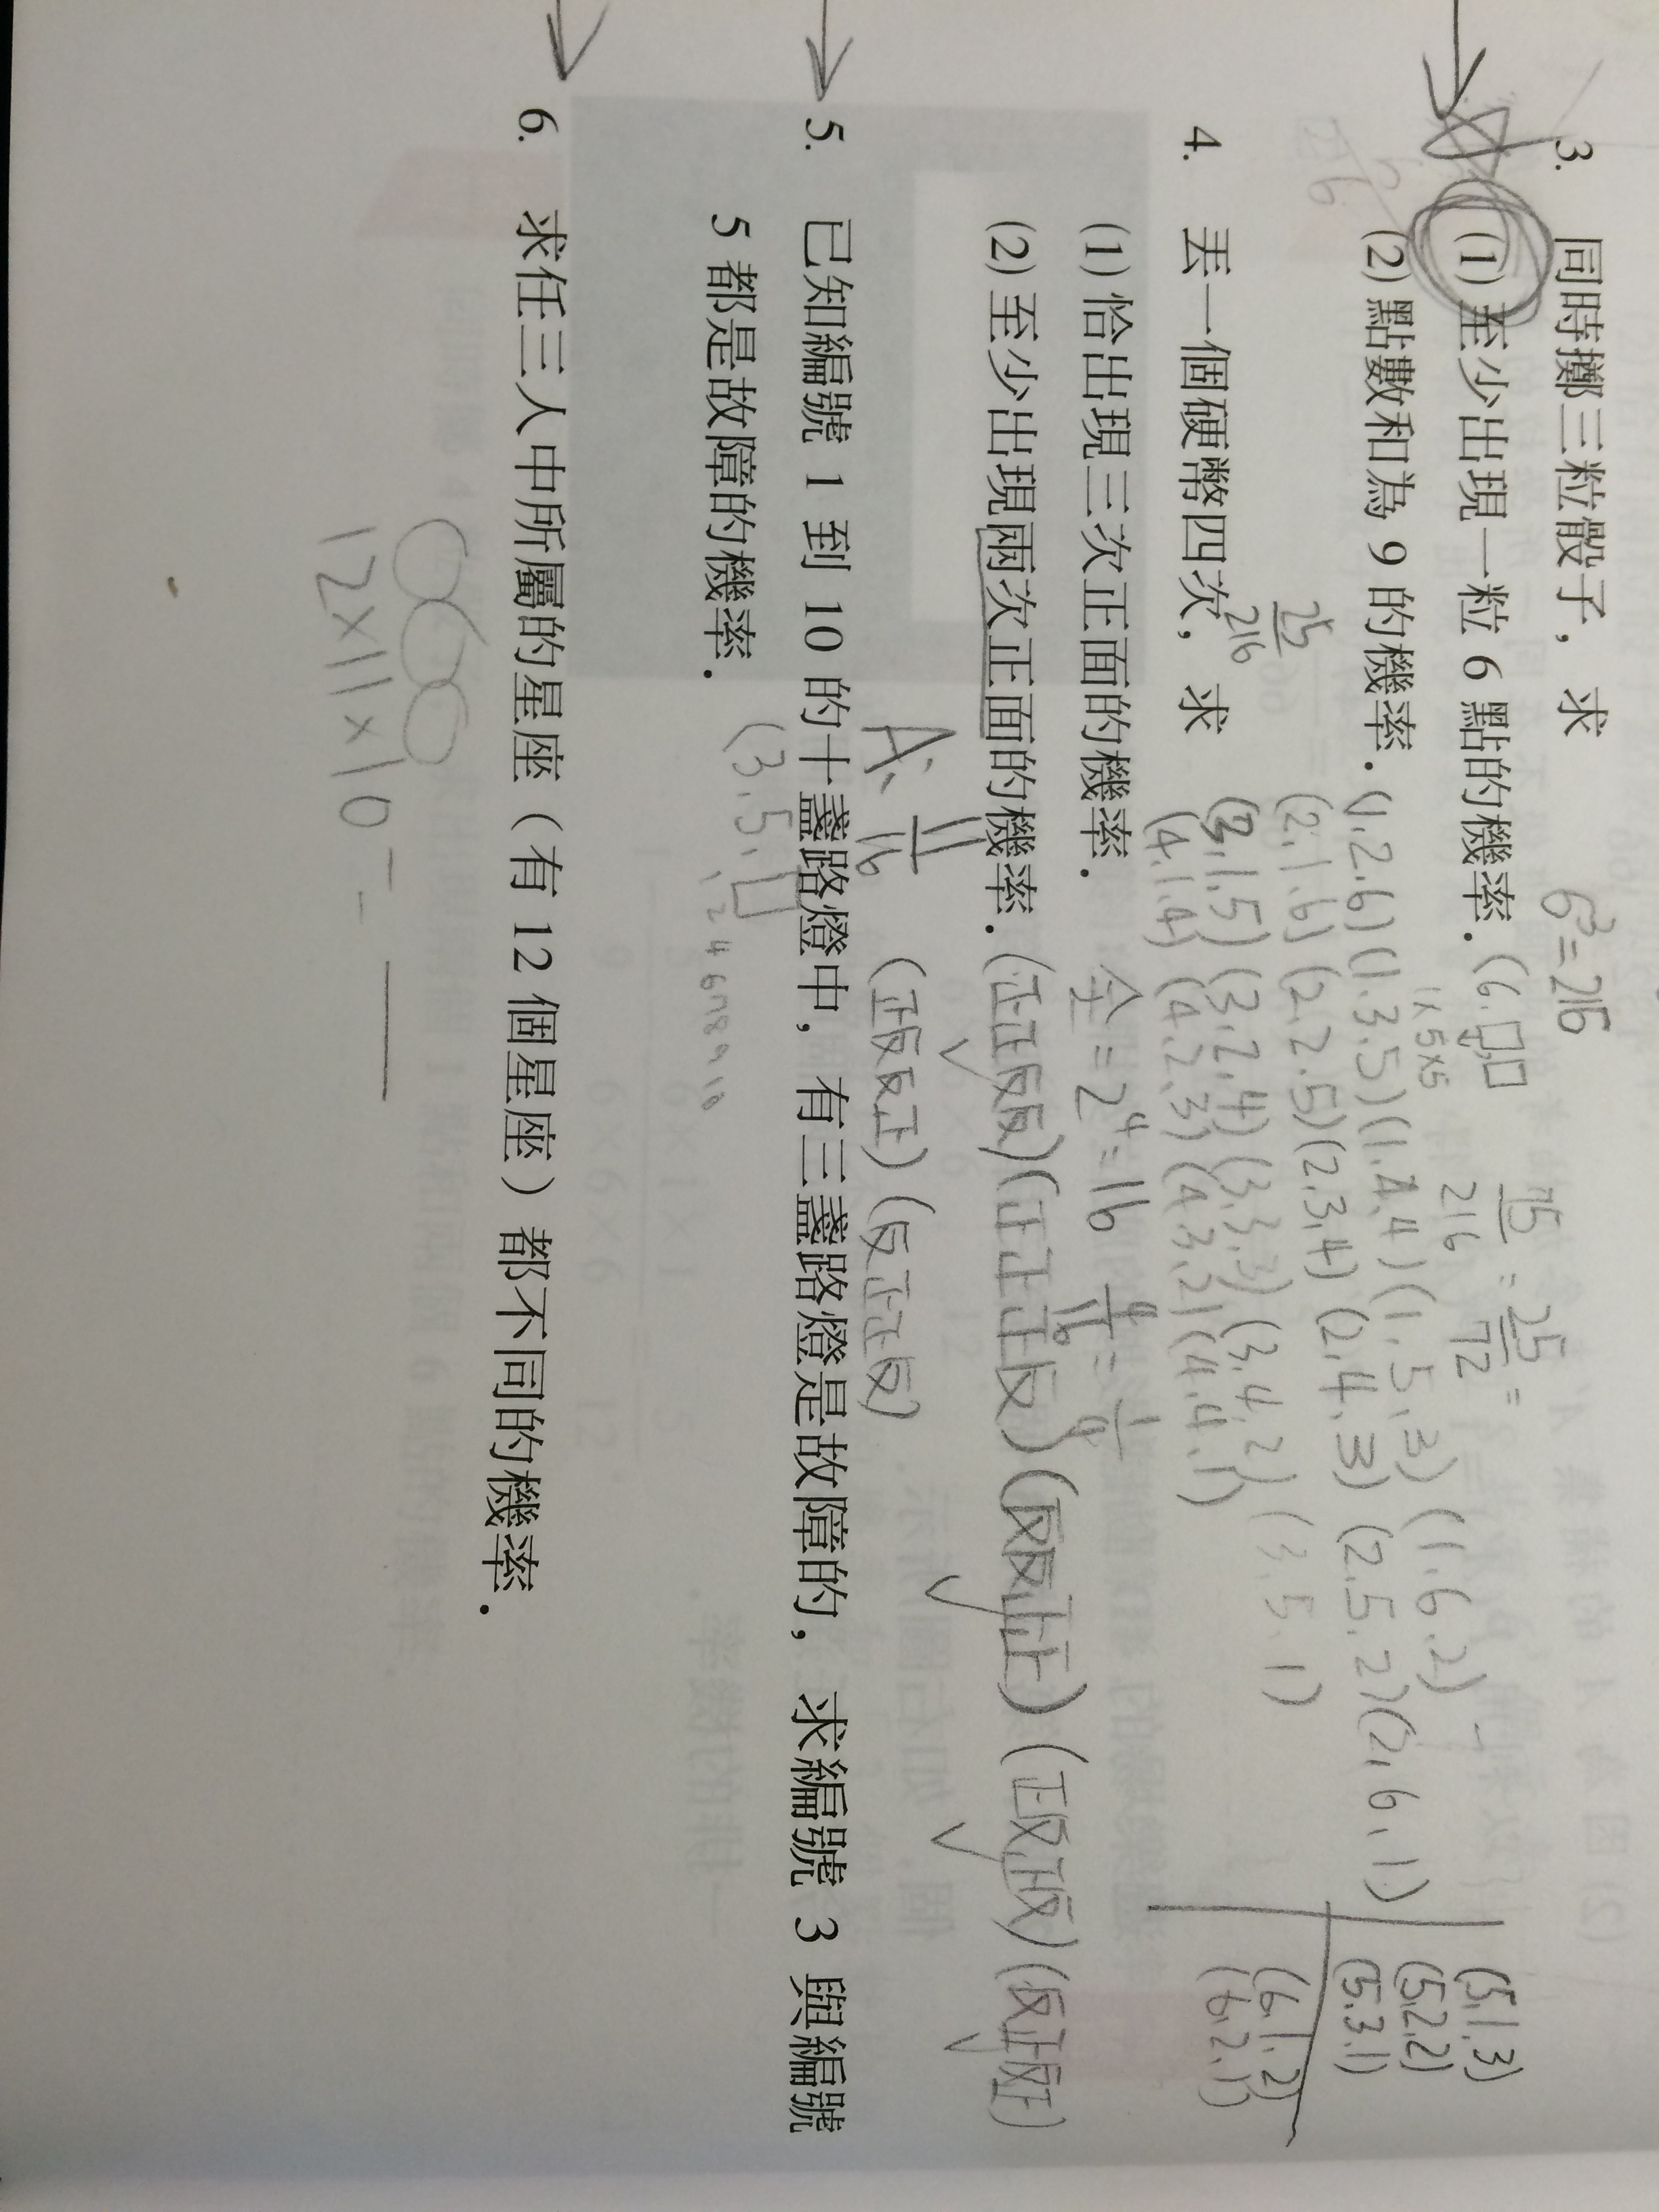 3. 同時擲三粒骰子，求 6³=216
(1) 至少出現一粒 6 點的機率. (6.□,□ 75/216 = 25/72 =
1×5×5
(2) 點數和為 9 的機率. (1.2.6)(1.3.5)(1.4.4)(1.5.3)(1.6.2)
25/216 (2.1.6)(2.2.5)(2.3.4)(2.4.3)(2.5.2)(2,6,1)
(3.1.5)(3.2.4)(3.3.3)(3.4.2)(3.5.1)
(4.1.4)(4.2.3)(4.3.2)(4.4.1)
(5.1.3)
(5.2.2)
(5.3.1)
(6.1.2)
(6.2.1)
4. 丟一個硬幣四次，求
(1) 恰出現三次正面的機率. 全=2⁴=16 4/16=1/4
(2) 至少出現兩次正面的機率. (正正反反)(正正正反)(反反正正)(正反正反)(反正反正)
A: 11/16 (正反反正)(反正正反)
5. 已知編號 1 到 10 的十盞路燈中，有三盞路燈是故障的，求編號 3 與編號
5 都是故障的機率.
(3.5,□
1 2 4 6 7 8 9 10
6. 求任三人中所屬的星座（有 12 個星座）都不同的機率.
12×11×10 =